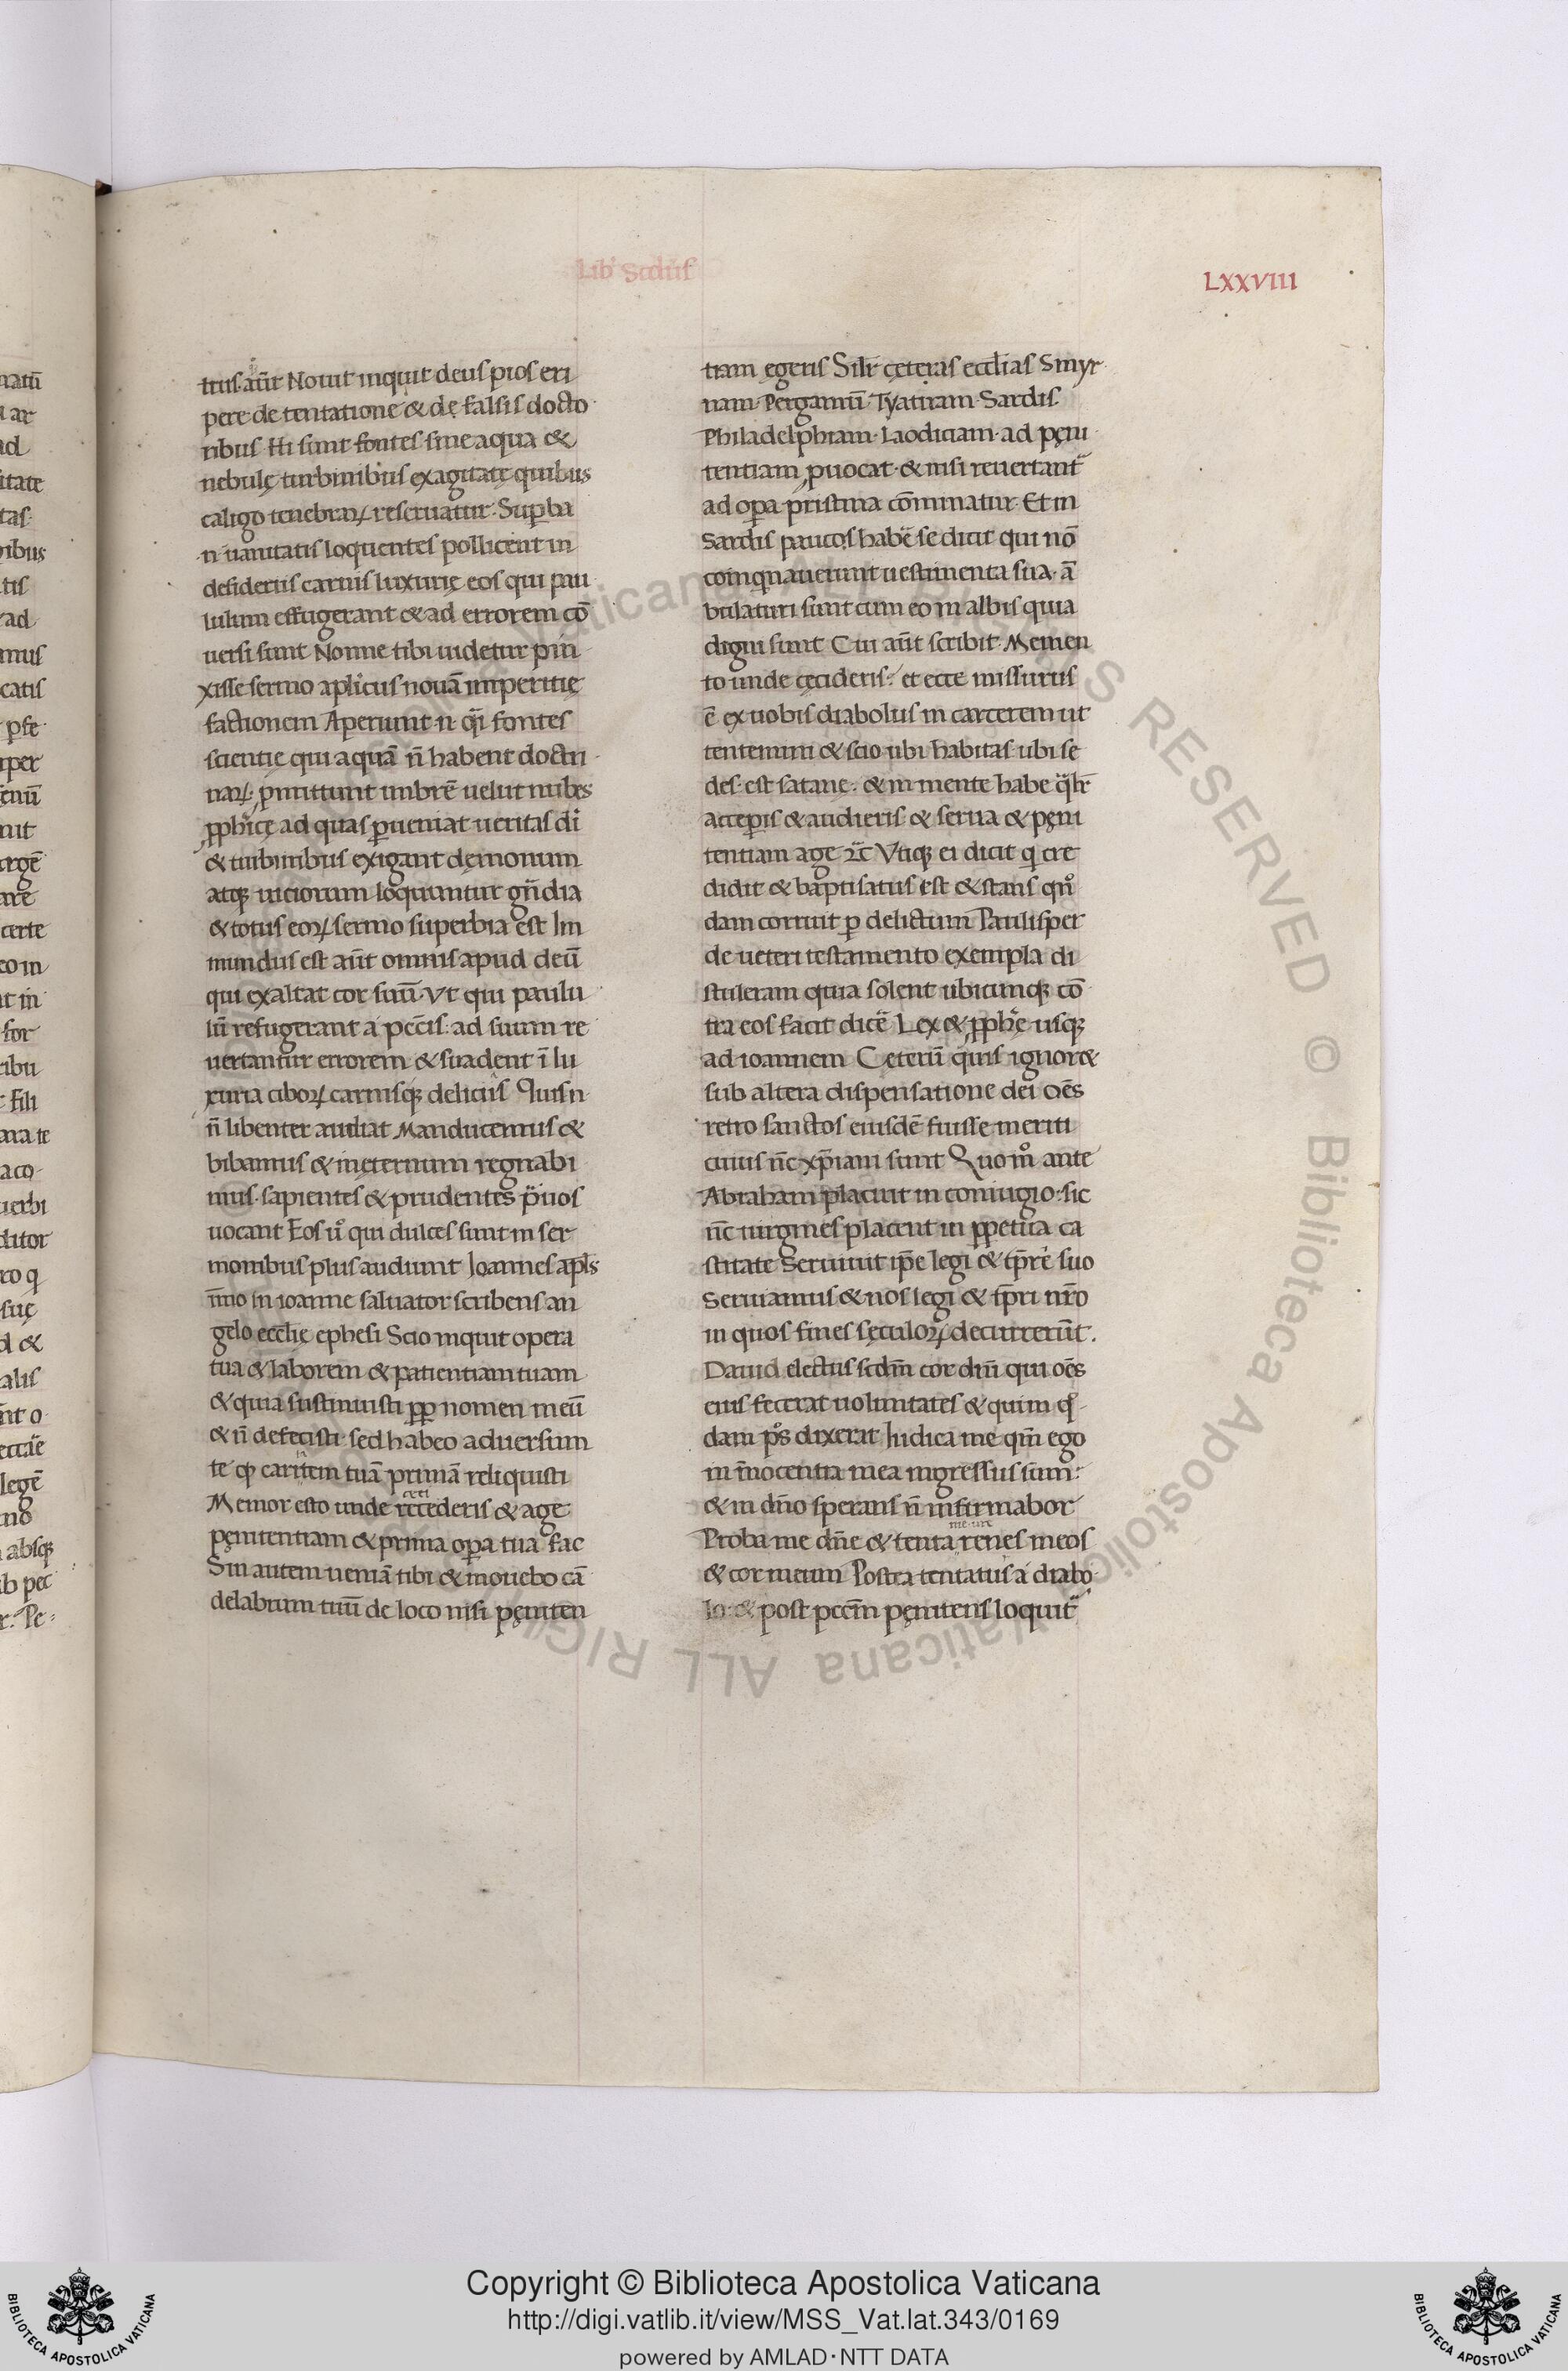 Lib' Scd'us
LXXVIII
trus aūt Nouit inquit deus pios eri
pere de tentatione & de falsis docto
ribus Hi sunt fontes sine aqua &
nebulę turbinibus exagitatę quibus
caligo tenebraꝝ reseruatur. Supba
n uanitatis loquentes pollicent in
desideriis carnis luxurię eos qui pau
lulum effugerant & ad errorem cō
uersi sunt Nonne tibi uidetur pin
xisse sermo aplicus nouā imperitię
factionem Aperiunt n qͣi fontes
scientię qui aquā n̄ habent doctri
naꝝ: ꝓmittunt imbrē uelut nubes
ꝓphicę ad quas ꝑueniat ueritas di
& turbinibus exigant demonum
atqꝫ uiciorum loquuntur gn̄dia
& totus eoꝝ sermo superbia est Im
mundus est aūt omnis apud deū
qui exaltat cor suū. Vt qui paulu
lū refugerant a pcc̄is: ad suum re
uertantur errorem & suadent ī lu
xuria ciboꝝ carnisqꝫ deliciis Quis n
n̄ libenter audiat Manducemus &
bibamus & inęternum regnabi
mus. sapientes & prudentes pͣuos
uocant Eos ů qui dulces sunt in ser
monibus plus audiunt Ioannes apl̄s
īmo in ioanne saluator scribens an
gelo eccl̄ię ephesi Scio inquit opera
tua & laborem & patientiam tuam
& quia sustinuisti ꝓp nomen meū
& n̄ defecisti sed habeo aduersum
te ꝙ caritem tuā primā reliquisti
Memor esto unde recederis & age
pęnitentiam & prima oꝑa tua fac
Sin autem ueniā tibi & mouebo cā
delabrum tuū de loco nisi pęniten
tiam egeris Silr cęteras eccl̄ias Smyr
nam Pergamū Tyatiram Sardis
Philadelphiam Laodiciam ad pęni
tentiam ꝓuocat & nisi reuertant
ad oꝑa pristina cōminatur Et in
Sardis paucos habē se dicit qui nō
coinqnauerunt uestimenta sua. ā
bulaturi sunt cum eo in albis quia
digni sunt Cui aūt scribit Memen
to unde cęcideris: et ecce missurus
ē ex uobis diabolus in carcerem ut
tentemini & scio ubi habitas ubi se
des est satanę: & in mente habe qͣlr
acceꝑis & audieris & serua & pęni
tentiam age ⁊c̄ Vtiqꝫ ei dicit q cre
didit & baptisatus est & stans qn̊
dam corruit ꝑ delictum Paulisper
de ueteri testamento exempla di
stuleram qua solent ubicunqꝫ cō
tra eos facit dicē Lex & ꝓphe usqꝫ
ad ioannem Ceterū quis ignor&
sub altera dispensatione dei oēs
retro sanctos eiusdē fuisse meriti
cuius nc̄ xp̄iani sunt Quom̊ ante
Abraham placuit in coniugio: sic
nc̄ uirgines placent in ꝑpetua ca
stitate Seruiuit ipe legi & tp̄re suo
Seruiamus & nos legi & tp̄ri nr̄o
in quos fines sęculoꝝ decurrerūt.
Dauid electus scdm cor dn̄i qui oēs
eius fecerat uoluntates & qui in q
dam ps dixerat Iudica me qm̄ ego
in īnocentia mea ingressus sum:
& in dn̄o sperans n̄ infirmabor
Proba me dn̄e & tenta renes meos
& cor meum Postea tentatus a diabo
lo: & post pccm̄ pęnitens loquit